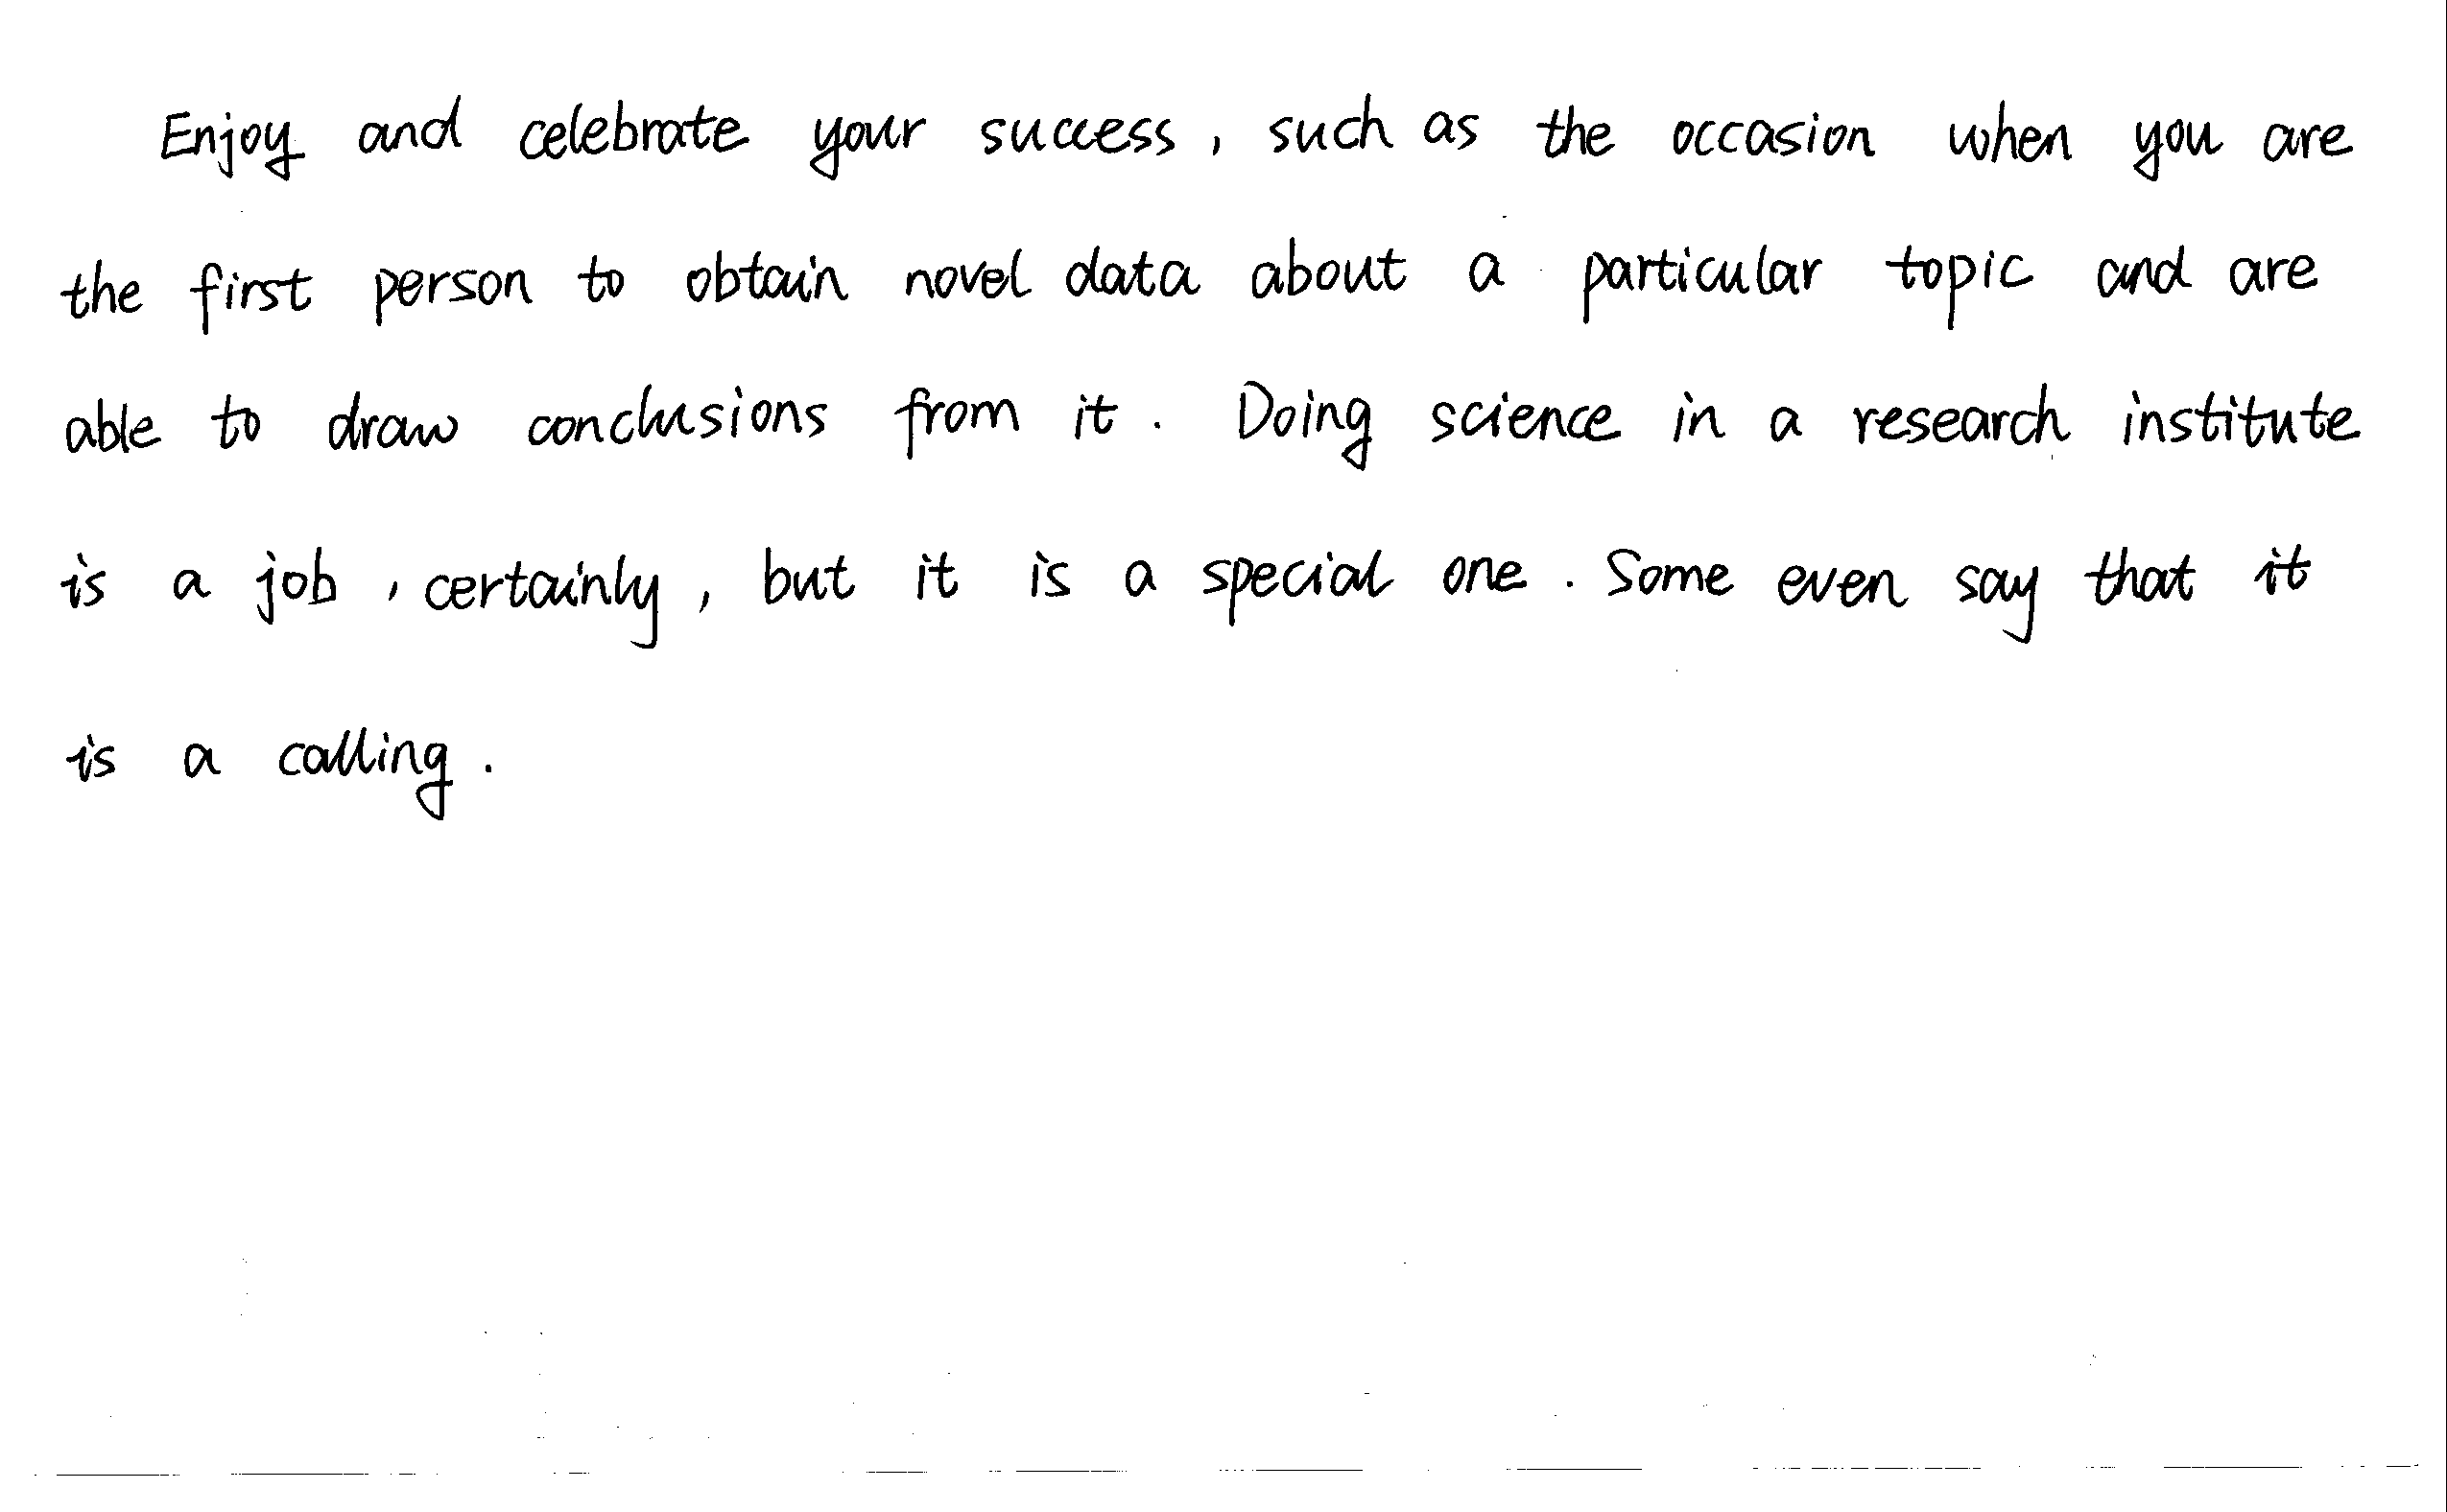 Enjoy and celebrate your success, such as the occasion when you are
the first person to obtain novel data about a particular topic and are
able to draw conclusions from it. Doing science in a research institute
is a job, certainly, but it is a special one. Some even say that it
is a calling.